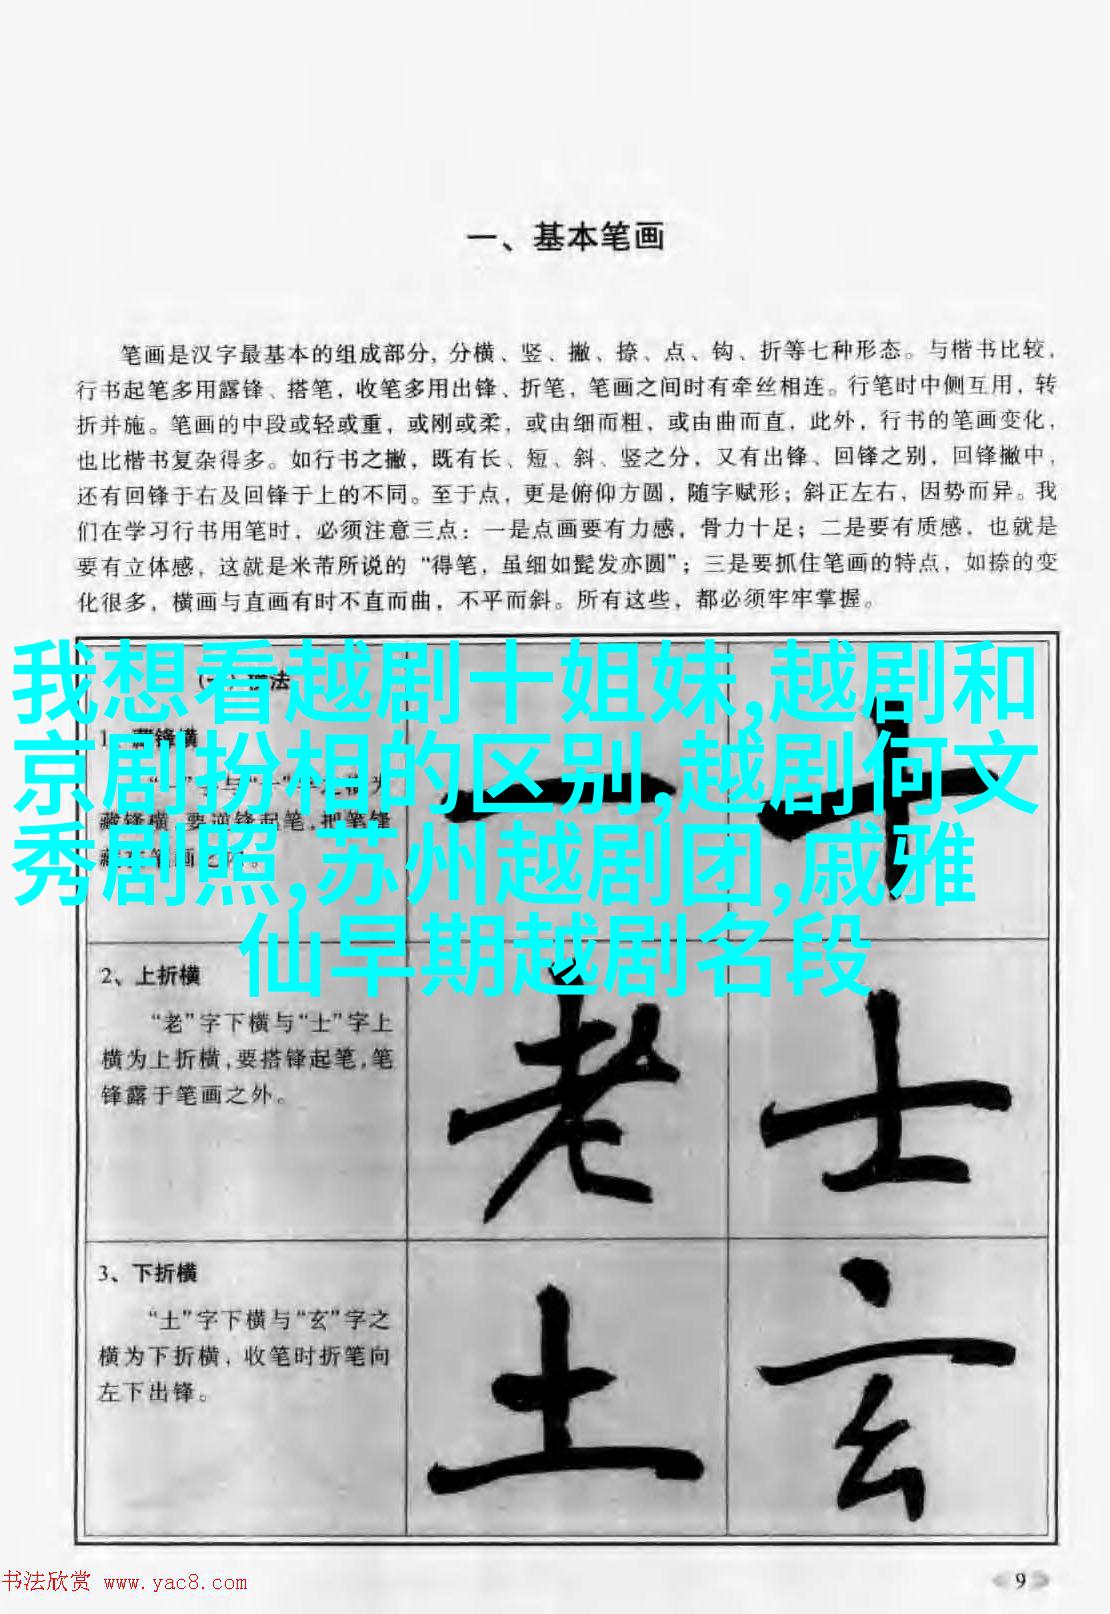 一、基本笔画
笔画是汉字最基本的组成部分，分横、竖、撇、捺、点、钩、折等七种形态。与楷书比较，
行书起笔多用露锋、搭笔，收笔多用出锋、折笔，笔画之间时有牵丝相连。行笔时中侧互用，转
折并施。笔画的中段或轻或重，或刚或柔，或由细而粗，或由曲而直，此外，行书的笔画变化，
也比楷书复杂得多。如行书之撇，既有长、短、斜、竖之分，又有出锋、回锋之别，回锋撇中，
还有回锋于右及回锋于上的不同。至于点，更是俯仰方圆，随字赋形；斜正左右，因势而异。我
们在学习行书用笔时，必须注意三点：一是点画要有力感，骨力十足；二是要有质感，也就是
要有立体感，这就是米芾所说的“得笔，虽细如髭发亦圆”；三是要抓住笔画的特点，如捺的变
化很多，横画与直画有时不直而曲，不平而斜。所有这些，都必须牢牢掌握。
我想看越剧十姐妹,越剧和
京剧扮相的区别,越剧何文
秀剧照,苏州越剧团,戚雅
仙早期越剧名段
藏锋横，要逆锋起笔，把笔锋
一 十
2、上折横
“老”字下横与“士”字上
横为上折横，要搭锋起笔，笔
锋露于笔画之外。
老 士
3、下折横
“土”字下横与“玄”字之
横为下折横，收笔时折笔向
左下出锋。
土 玄
书法欣赏 www.yac8.com
9